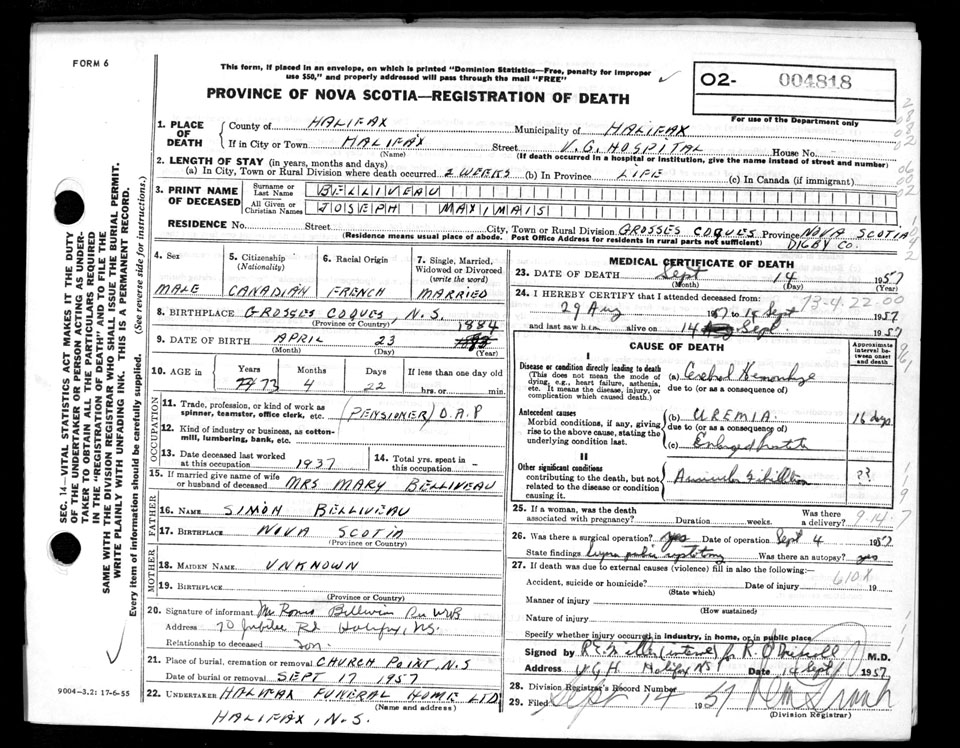 FORM 6
This form, if placed in an envelope, on which is printed "Dominion Statistics—Free, penalty for improper
use $50," and properly addressed will pass through the mail "FREE"
PROVINCE OF NOVA SCOTIA—REGISTRATION OF DEATH
02- 004818
For use of the Department only
SEC. 14—VITAL STATISTICS ACT MAKES IT THE DUTY
OF THE UNDERTAKER OR PERSON ACTING AS UNDER-
TAKER TO OBTAIN ALL THE PARTICULARS REQUIRED
IN THE "REGISTRATION OF DEATH" AND TO FILE THE
SAME WITH THE DIVISION REGISTRAR WHO SHALL ISSUE THE BURIAL PERMIT.
WRITE PLAINLY WITH UNFADING INK. THIS IS A PERMANENT RECORD.
Every item of information should be carefully supplied. (See reverse side for instructions.)
1. PLACE OF DEATH
County of HALIFAX Municipality of HALIFAX
If in City or Town HALIFAX Street V.G. HOSPITAL House No.
(Name) (If death occurred in a hospital or institution, give the name instead of street and number)
2. LENGTH OF STAY (in years, months and days)
(a) In City, Town or Rural Division where death occurred 2 WEEKS (b) In Province LIFE (c) In Canada (if immigrant)
3. PRINT NAME OF DECEASED
Surname or Last Name BELLIVEAU
All Given or Christian Names JOSEPH MAXIMAIS
RESIDENCE No. Street City, Town or Rural Division GROSSES COQUES Province NOVA SCOTIA
(Residence means usual place of abode. Post Office Address for residents in rural parts not sufficient) DIGBY CO.
4. Sex
MALE
5. Citizenship (Nationality)
CANADIAN
6. Racial Origin
FRENCH
7. Single, Married, Widowed or Divorced (write the word)
MARRIED
8. BIRTHPLACE GROSSES COQUES, N.S.
(Province or Country)
1884
9. DATE OF BIRTH APRIL 23
(Month) (Day) (Year)
10. AGE in Years Months Days If less than one day old
73 4 22 hrs. or min.
OCCUPATION
11. Trade, profession, or kind of work as
spinner, teamster, office clerk, etc. (PENSIONER) O.A.P
12. Kind of industry or business, as cotton-
mill, lumbering, bank, etc.
13. Date deceased last worked
at this occupation 1937
14. Total yrs. spent in
this occupation
15. If married give name of wife
or husband of deceased MRS MARY BELLIVEAU
FATHER
16. NAME SIMON BELLIVEAU
17. BIRTHPLACE NOVA SCOTIA
(Province or Country)
MOTHER
18. MAIDEN NAME UNKNOWN
19. BIRTHPLACE
(Province or Country)
20. Signature of informant
Address 70 Jubilee Rd Halifax, N.S.
Relationship to deceased Son.
21. Place of burial, cremation or removal CHURCH POINT, N.S
Date of burial or removal SEPT 17 1957
22. UNDERTAKER HALIFAX FUNERAL HOME LTD
(Name and address)
HALIFAX, N.S.
9004-3.2: 17-6-55
MEDICAL CERTIFICATE OF DEATH
23. DATE OF DEATH Sept 14 1957
(Month) (Day) (Year)
24. I HEREBY CERTIFY that I attended deceased from: 73-4.22.00
29 Aug 1957 to Sept 1957
and last saw him alive on 14 Sept. 1957
CAUSE OF DEATH
Approximate interval between onset and death
I
Disease or condition directly leading to death
(This does not mean the mode of
dying, e.g., heart failure, asthenia,
etc. It means the disease, injury, or
complication which caused death.)
(a) Cerebral Hemorrhage
due to (or as a consequence of)
Antecedent causes
Morbid conditions, if any, giving
rise to the above cause, stating the
underlying condition last.
(b) UREMIA 16 days
due to (or as a consequence of)
(c) Enlarged prostate
II
Other significant conditions
contributing to the death, but not
related to the disease or condition
causing it.
Auricular Fibrillation ??
25. If a woman, was the death
associated with pregnancy? Duration weeks. Was there a delivery?
9.14.7
26. Was there a surgical operation? yes Date of operation Sept 4 1957
State findings supra pubic cystotomy Was there an autopsy? yes
27. If death was due to external causes (violence) fill in also the following:—
610X
Accident, suicide or homicide? Date of injury 19
(State which)
Manner of injury
(How sustained)
Nature of injury
Specify whether injury occurred in industry, in home, or in public place
Signed by (interne) for M.D.
Address V.G.H. Halifax NS Date 14 Sept 1957
28. Division Registrar's Record Number
29. Filed Sept 14 1957
(Division Registrar)